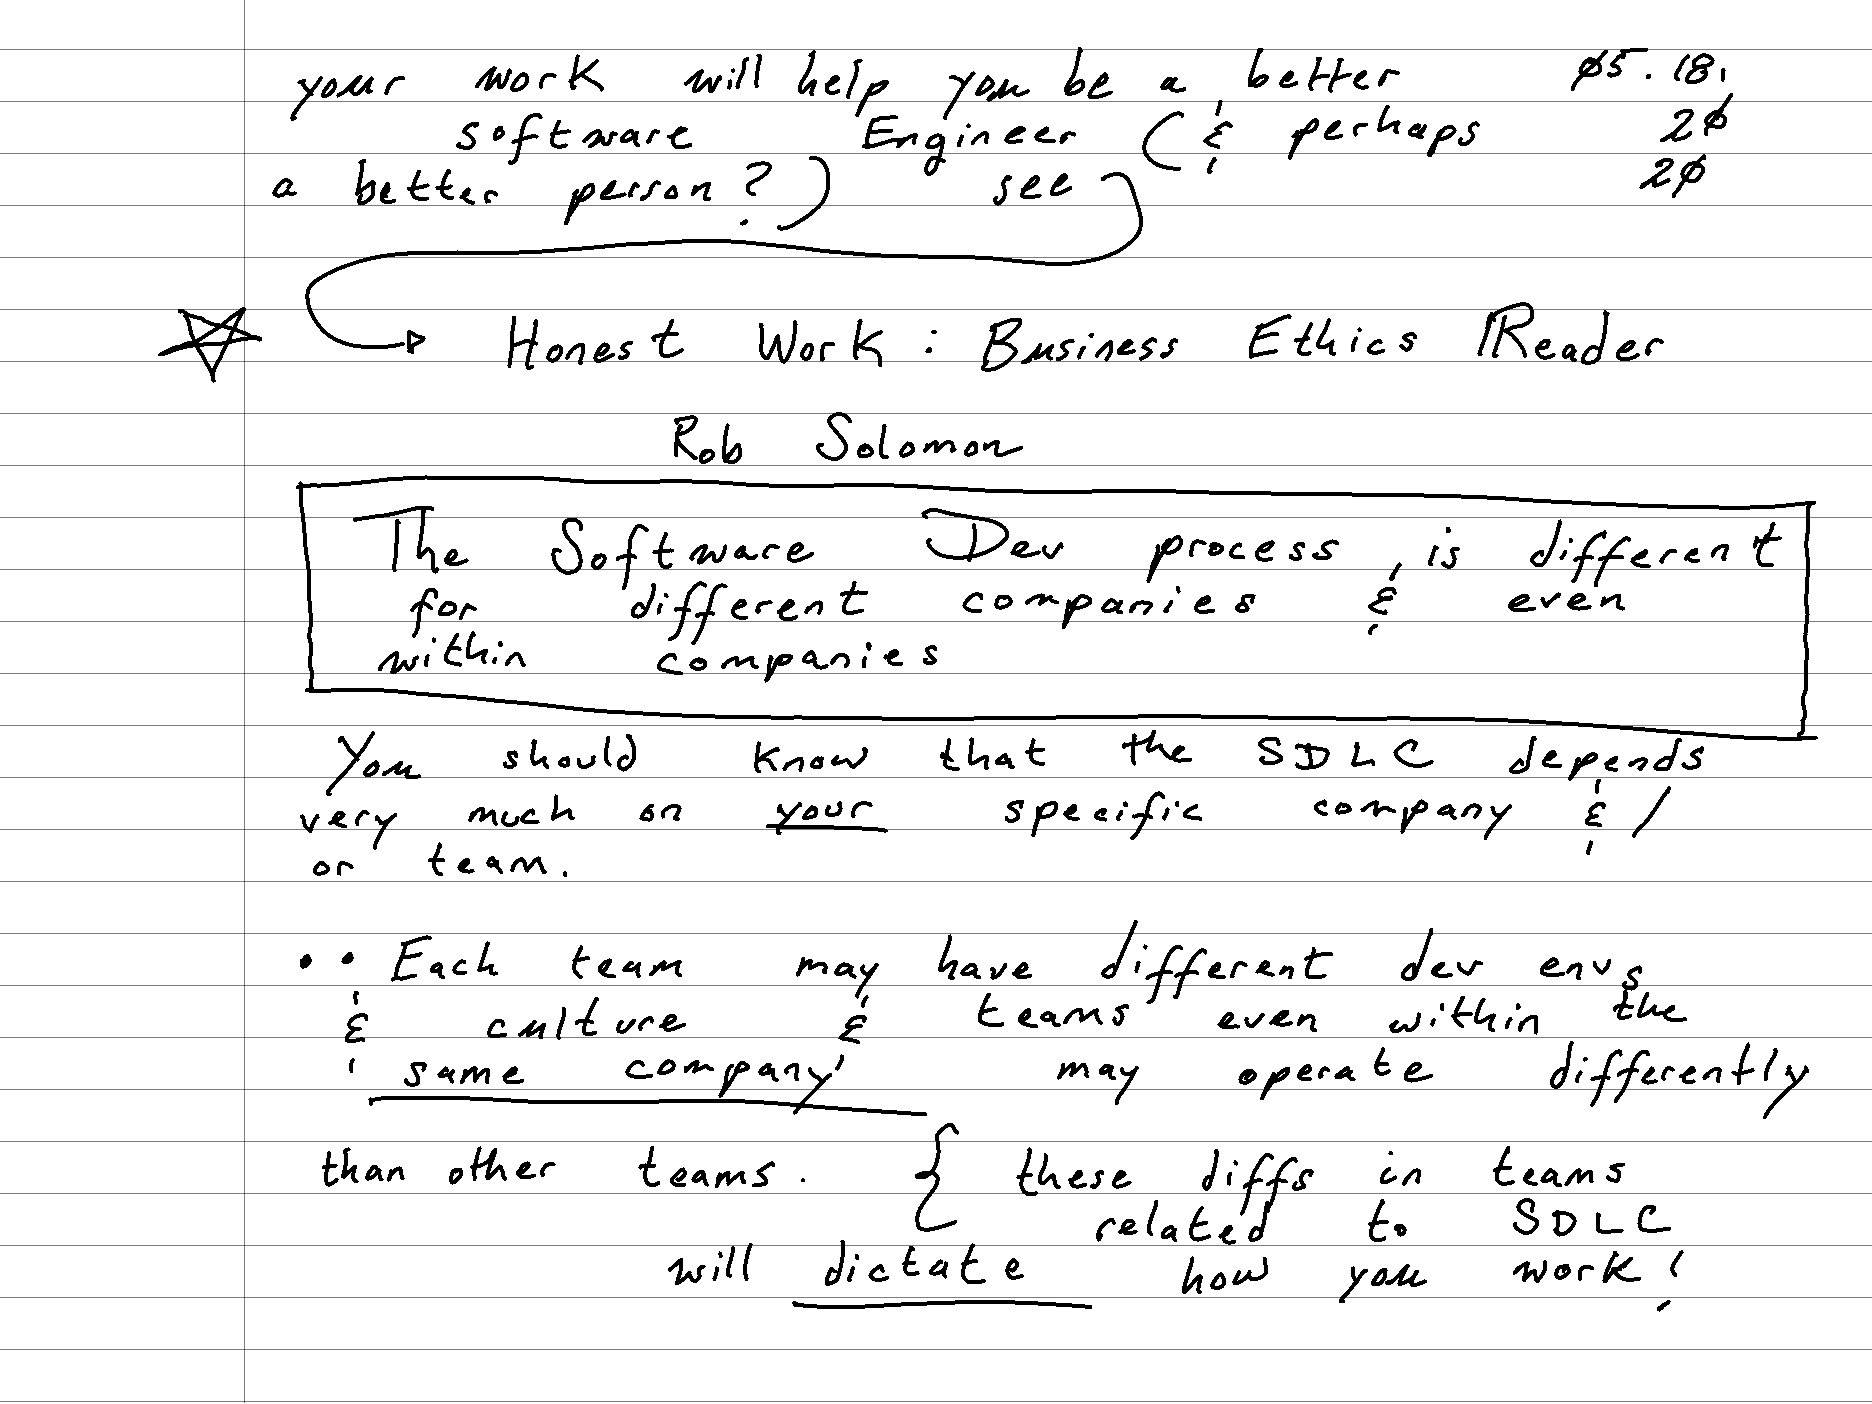 your work will help you be a better 05.18.
software Engineer (& perhaps 20
a better person?) see 20
Honest Work: Business Ethics Reader
Rob Solomon
The Software Dev process is different
for different companies & even
within companies
You should know that the SDLC depends
very much on your specific company & /
or team.
•• Each team may have different dev envs
& culture & teams even within the
same company may operate differently
than other teams. { these diffs in teams
related to SDLC
will dictate how you work!